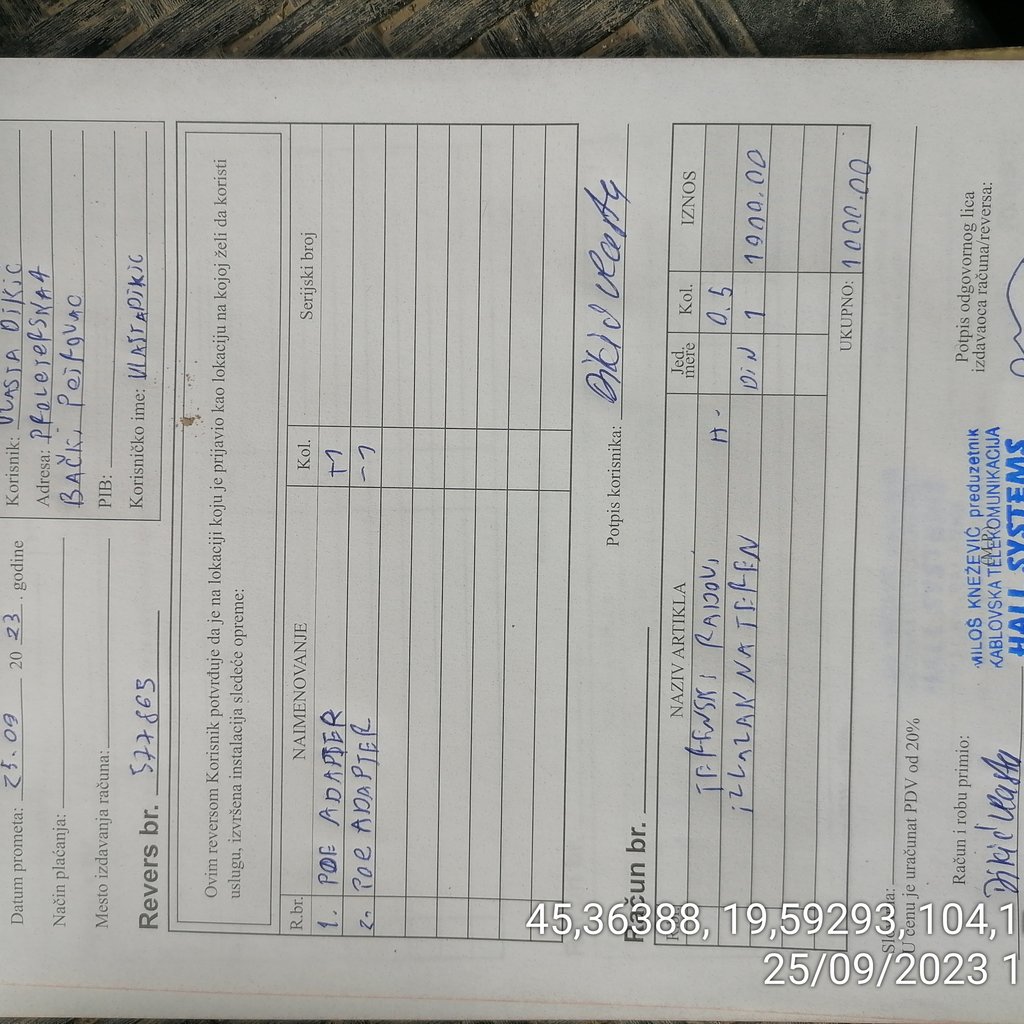 Datum prometa: 25.09 2023. godine
Način plaćanja:
Mesto izdavanja računa:
Korisnik: VLASTA DIKIC
Adresa: PROLETERSKA
BAČKI PETROVAC
PIB:
Korisničko ime: VLASTADIKIC
Revers br. 577865
Ovim reversom Korisnik potvrđuje da je na lokaciji koju je prijavio kao lokaciju na kojoj želi da koristi
uslugu, izvršena instalacija sledeće opreme:
R.br. NAIMENOVANJE Kol. Serijski broj
1. POE ADAPTER +1
2. POE ADAPTER -1
Potpis korisnika: Dikić Vlasta
Račun br.
NAZIV ARTIKLA Jed. mere Kol. IZNOS
TERENSKI RADOVI H- 0.5
IZLAZAK NA TEREN DIN 1 1000.00
UKUPNO: 1000.00
Slovima:
U cenu je uračunat PDV od 20%
Račun i robu primio:
Dikić Vlasta
(M.P.)
MILOŠ KNEŽEVIĆ preduzetnik
KABLOVSKA TELEKOMUNIKACIJA
HALL SYSTEMS
Potpis odgovornog lica
izdavaoca računa/reversa:
45,36388, 19,59293, 104,1
25/09/2023 1